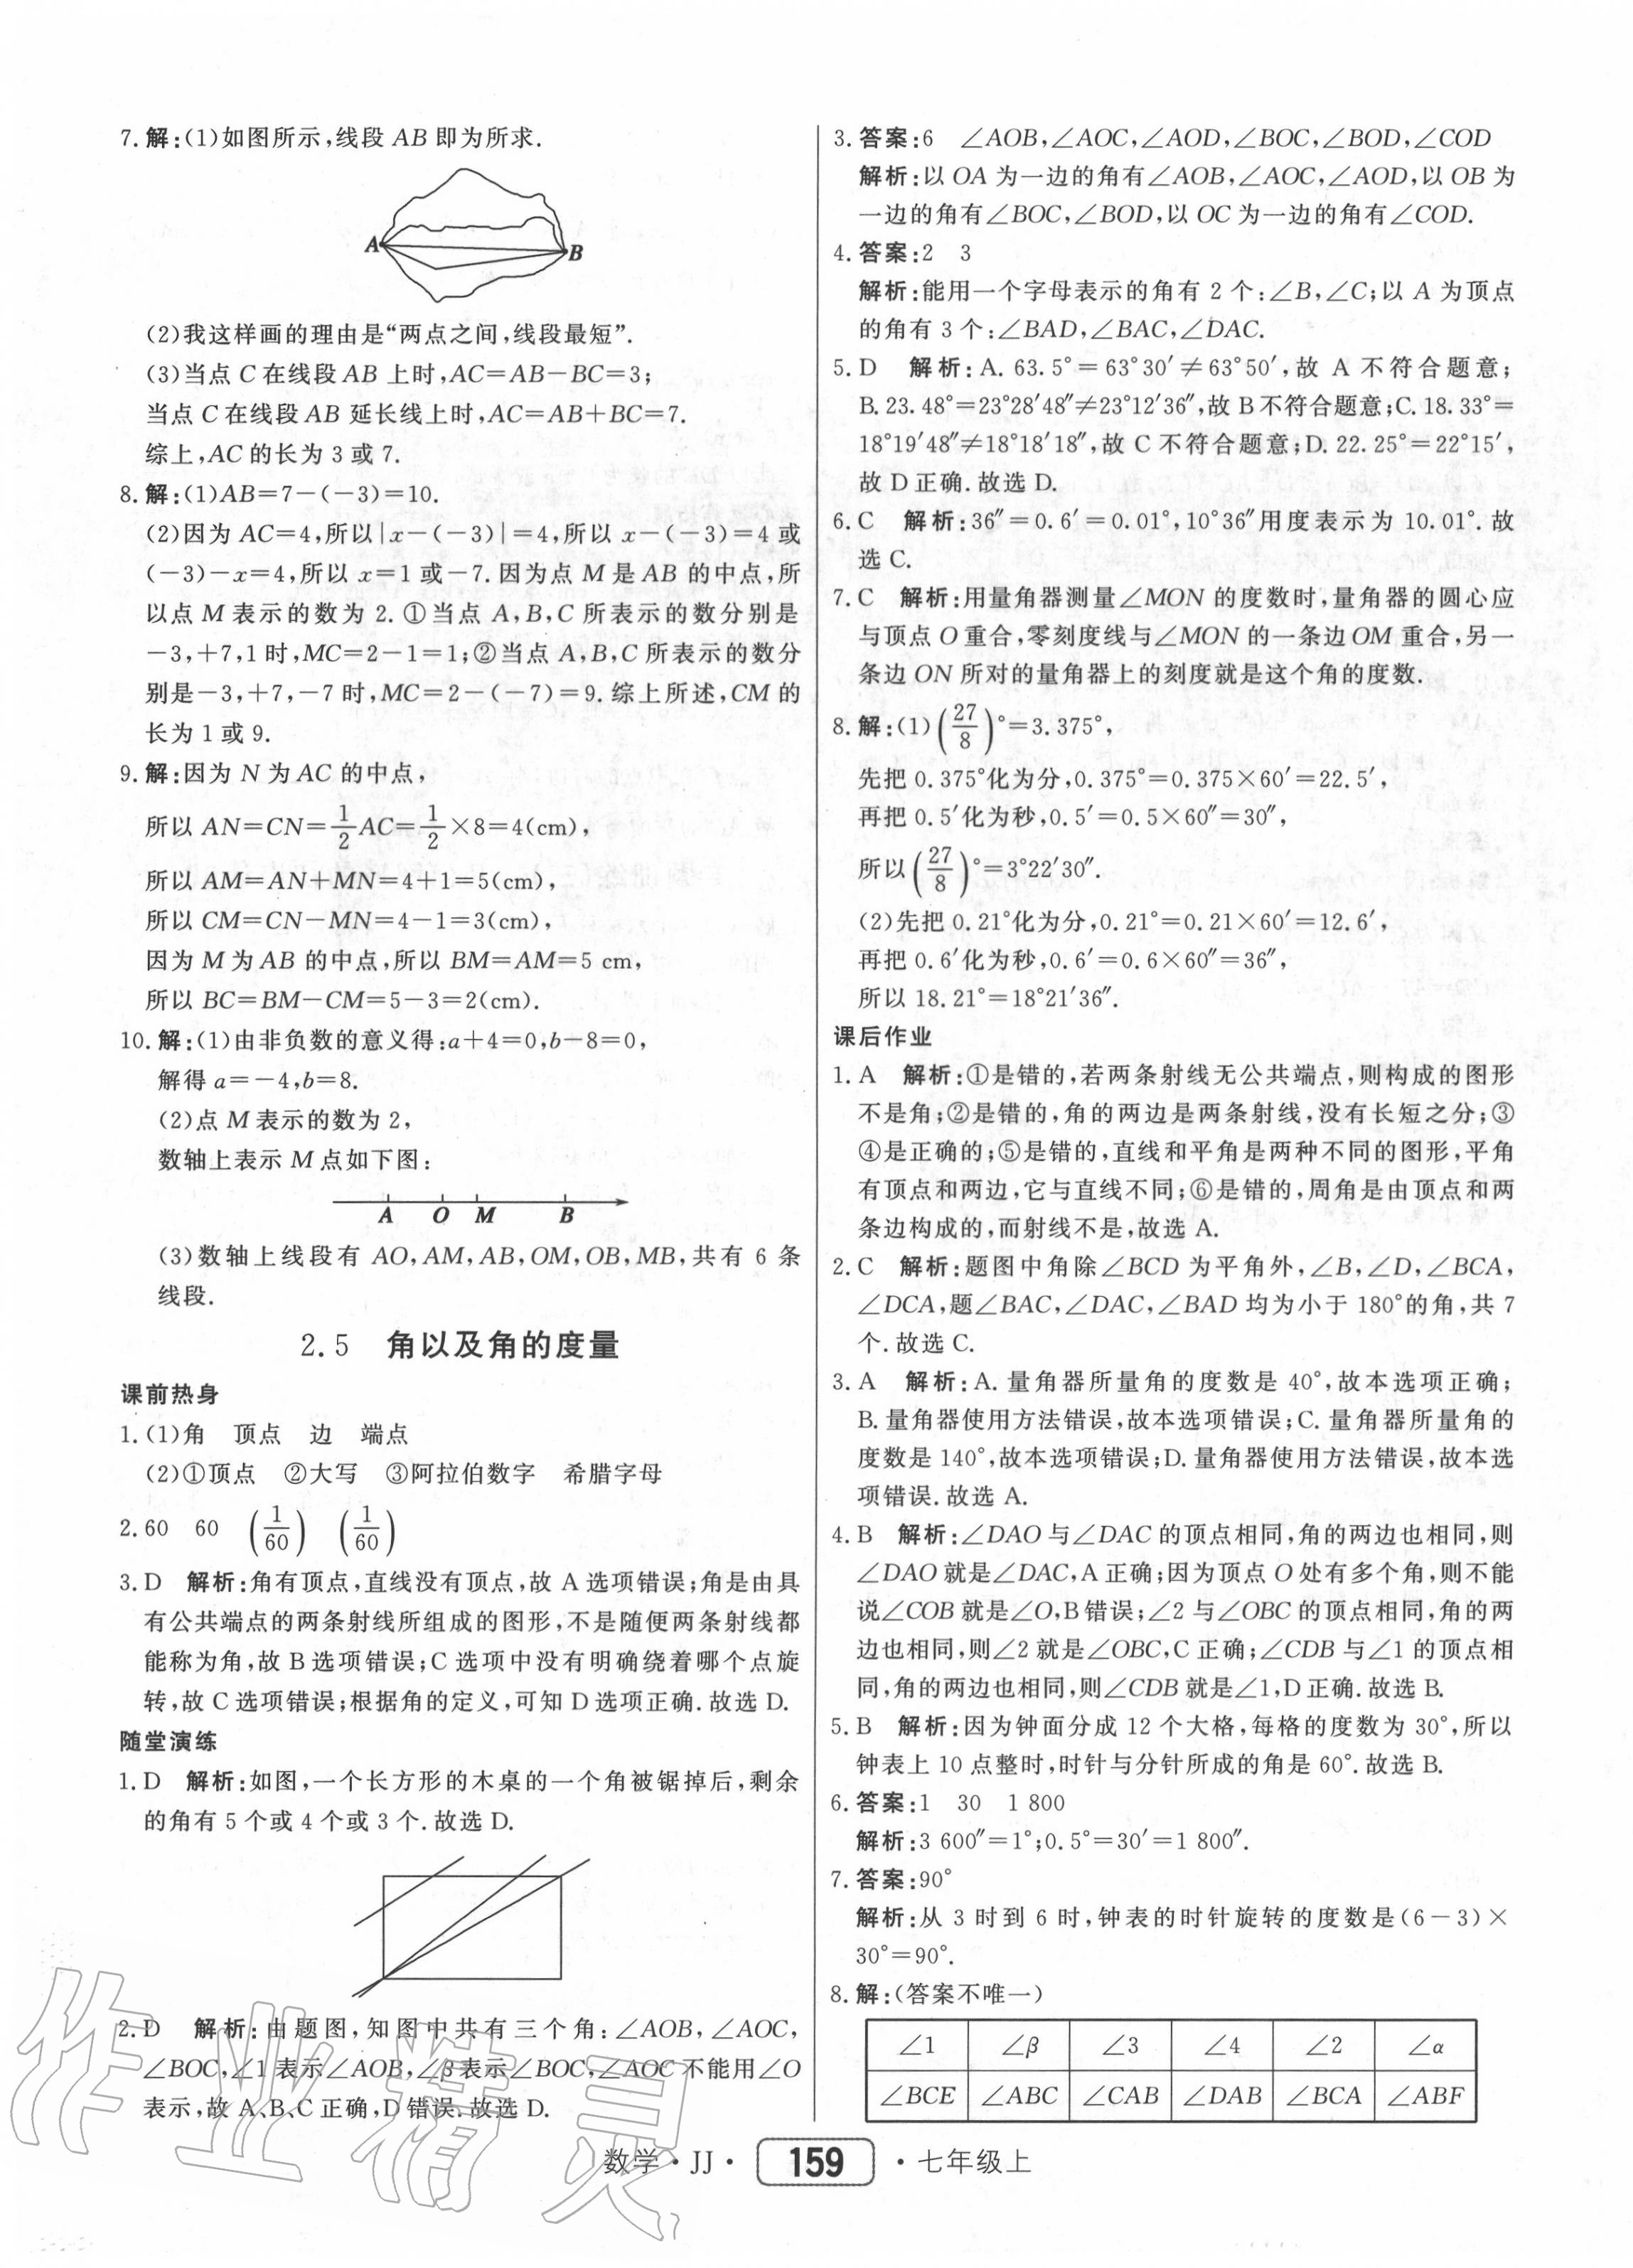 7.解:(1)如图所示,线段 AB 即为所求.
A
B
(2)我这样画的理由是“两点之间,线段最短”.
(3)当点 C 在线段 AB 上时,AC=AB−BC=3;
当点 C 在线段 AB 延长线上时,AC=AB+BC=7.
综上,AC 的长为 3 或 7.
8.解:(1)AB=7−(−3)=10.
(2)因为 AC=4,所以|x−(−3)|=4,所以 x−(−3)=4 或
(−3)−x=4,所以 x=1 或−7.因为点 M 是 AB 的中点,所
以点 M 表示的数为 2.①当点 A,B,C 所表示的数分别是
−3,+7,1 时,MC=2−1=1;②当点 A,B,C 所表示的数分
别是−3,+7,−7 时,MC=2−(−7)=9.综上所述,CM 的
长为 1 或 9.
9.解:因为 N 为 AC 的中点,
所以 AN=CN=1/2 AC=1/2×8=4(cm),
所以 AM=AN+MN=4+1=5(cm),
所以 CM=CN−MN=4−1=3(cm),
因为 M 为 AB 的中点,所以 BM=AM=5 cm,
所以 BC=BM−CM=5−3=2(cm).
10.解:(1)由非负数的意义得:a+4=0,b−8=0,
解得 a=−4,b=8.
(2)点 M 表示的数为 2,
数轴上表示 M 点如下图:
A O M B
(3)数轴上线段有 AO,AM,AB,OM,OB,MB,共有 6 条
线段.
2.5 角以及角的度量
课前热身
1.(1)角 顶点 边 端点
(2)①顶点 ②大写 ③阿拉伯数字 希腊字母
2.60 60 (1/60) (1/60)
3.D 解析:角有顶点,直线没有顶点,故 A 选项错误;角是由具
有公共端点的两条射线所组成的图形,不是随便两条射线都
能称为角,故 B 选项错误;C 选项中没有明确绕着哪个点旋
转,故 C 选项错误;根据角的定义,可知 D 选项正确.故选 D.
随堂演练
1.D 解析:如图,一个长方形的木桌的一个角被锯掉后,剩余
的角有 5 个或 4 个或 3 个.故选 D.
2.D 解析:由题图,知图中共有三个角:∠AOB,∠AOC,
∠BOC,∠1 表示∠AOB,∠β表示∠BOC,∠AOC 不能用∠O
表示,故 A、B、C 正确,D 错误.故选 D.
3.答案:6 ∠AOB,∠AOC,∠AOD,∠BOC,∠BOD,∠COD
解析:以 OA 为一边的角有∠AOB,∠AOC,∠AOD,以 OB 为
一边的角有∠BOC,∠BOD,以 OC 为一边的角有∠COD.
4.答案:2 3
解析:能用一个字母表示的角有 2 个:∠B,∠C;以 A 为顶点
的角有 3 个:∠BAD,∠BAC,∠DAC.
5.D 解析:A.63.5°=63°30′≠63°50′,故 A 不符合题意;
B.23.48°=23°28′48″≠23°12′36″,故 B 不符合题意;C.18.33°=
18°19′48″≠18°18′18″,故 C 不符合题意;D.22.25°=22°15′,
故 D 正确.故选 D.
6.C 解析:36″=0.6′=0.01°,10°36″用度表示为 10.01°.故
选 C.
7.C 解析:用量角器测量∠MON 的度数时,量角器的圆心应
与顶点 O 重合,零刻度线与∠MON 的一条边 OM 重合,另一
条边 ON 所对的量角器上的刻度就是这个角的度数.
8.解:(1)(27/8)°=3.375°,
先把 0.375°化为分,0.375°=0.375×60′=22.5′,
再把 0.5′化为秒,0.5′=0.5×60″=30″,
所以(27/8)°=3°22′30″.
(2)先把 0.21°化为分,0.21°=0.21×60′=12.6′,
再把 0.6′化为秒,0.6′=0.6×60″=36″,
所以 18.21°=18°21′36″.
课后作业
1.A 解析:①是错的,若两条射线无公共端点,则构成的图形
不是角;②是错的,角的两边是两条射线,没有长短之分;③
④是正确的;⑤是错的,直线和平角是两种不同的图形,平角
有顶点和两边,它与直线不同;⑥是错的,周角是由顶点和两
条边构成的,而射线不是,故选 A.
2.C 解析:题图中角除∠BCD 为平角外,∠B,∠D,∠BCA,
∠DCA,题∠BAC,∠DAC,∠BAD 均为小于 180°的角,共 7
个.故选 C.
3.A 解析:A.量角器所量角的度数是 40°,故本选项正确;
B.量角器使用方法错误,故本选项错误;C.量角器所量角的
度数是 140°,故本选项错误;D.量角器使用方法错误,故本选
项错误.故选 A.
4.B 解析:∠DAO 与∠DAC 的顶点相同,角的两边也相同,则
∠DAO 就是∠DAC,A 正确;因为顶点 O 处有多个角,则不能
说∠COB 就是∠O,B 错误;∠2 与∠OBC 的顶点相同,角的两
边也相同,则∠2 就是∠OBC,C 正确;∠CDB 与∠1 的顶点相
同,角的两边也相同,则∠CDB 就是∠1,D 正确.故选 B.
5.B 解析:因为钟面分成 12 个大格,每格的度数为 30°,所以
钟表上 10 点整时,时针与分针所成的角是 60°.故选 B.
6.答案:1 30 1 800
解析:3 600″=1°;0.5°=30′=1 800″.
7.答案:90°
解析:从 3 时到 6 时,钟表的时针旋转的度数是(6−3)×
30°=90°.
8.解:(答案不唯一)
∠1 ∠β ∠3 ∠4 ∠2 ∠α
∠BCE ∠ABC ∠CAB ∠DAB ∠BCA ∠ABF
作业精灵
数学·JJ· 159 ·七年级上